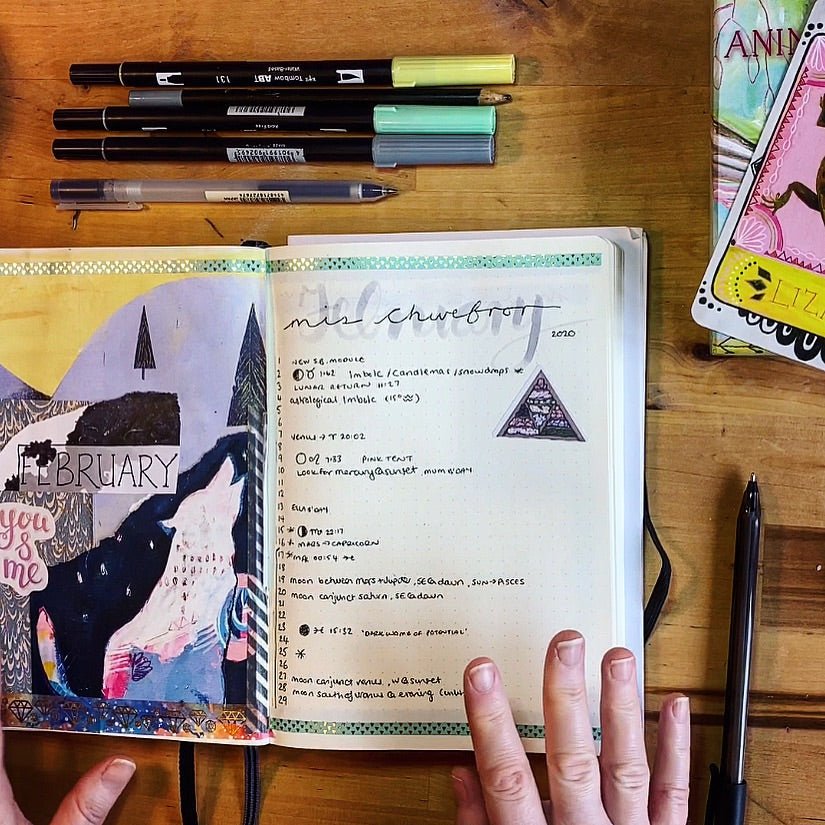 131 ABT Tombow
Water-Based
4 901991 902693
JAPAN
ANIM
LIZA
FEBRUARY
you
&
me
February
mis chwefror
2020
1 NEW S.B. MODULE
2 ◐♉ 1:42 Imbolc/Candlemas/snowdrops *
3 LUNAR RETURN 11:27
4 astrological Imbolc (15°♒)
5
6
7 VENUS → ♈ 20:02
8
9 ○♌ 7:33 PINK TENT
10 Look for mercury@sunset, MUM B'DAY
11
12
13 ELLA B'DAY
14
15 * ◑♏ 22:17
16 * MARS → CAPRICORN
17 * 00:54
18
19 moon between mars & Jupiter, SE@dawn, SUN → PISCES
20 moon conjunct saturn, SE@dawn
21
22
23 ●♓ 15:32 'DARK WOMB OF POTENTIAL'
24
25 *
26
27 moon conjunct venus, W@sunset
28 moon south of venus @ evening
29